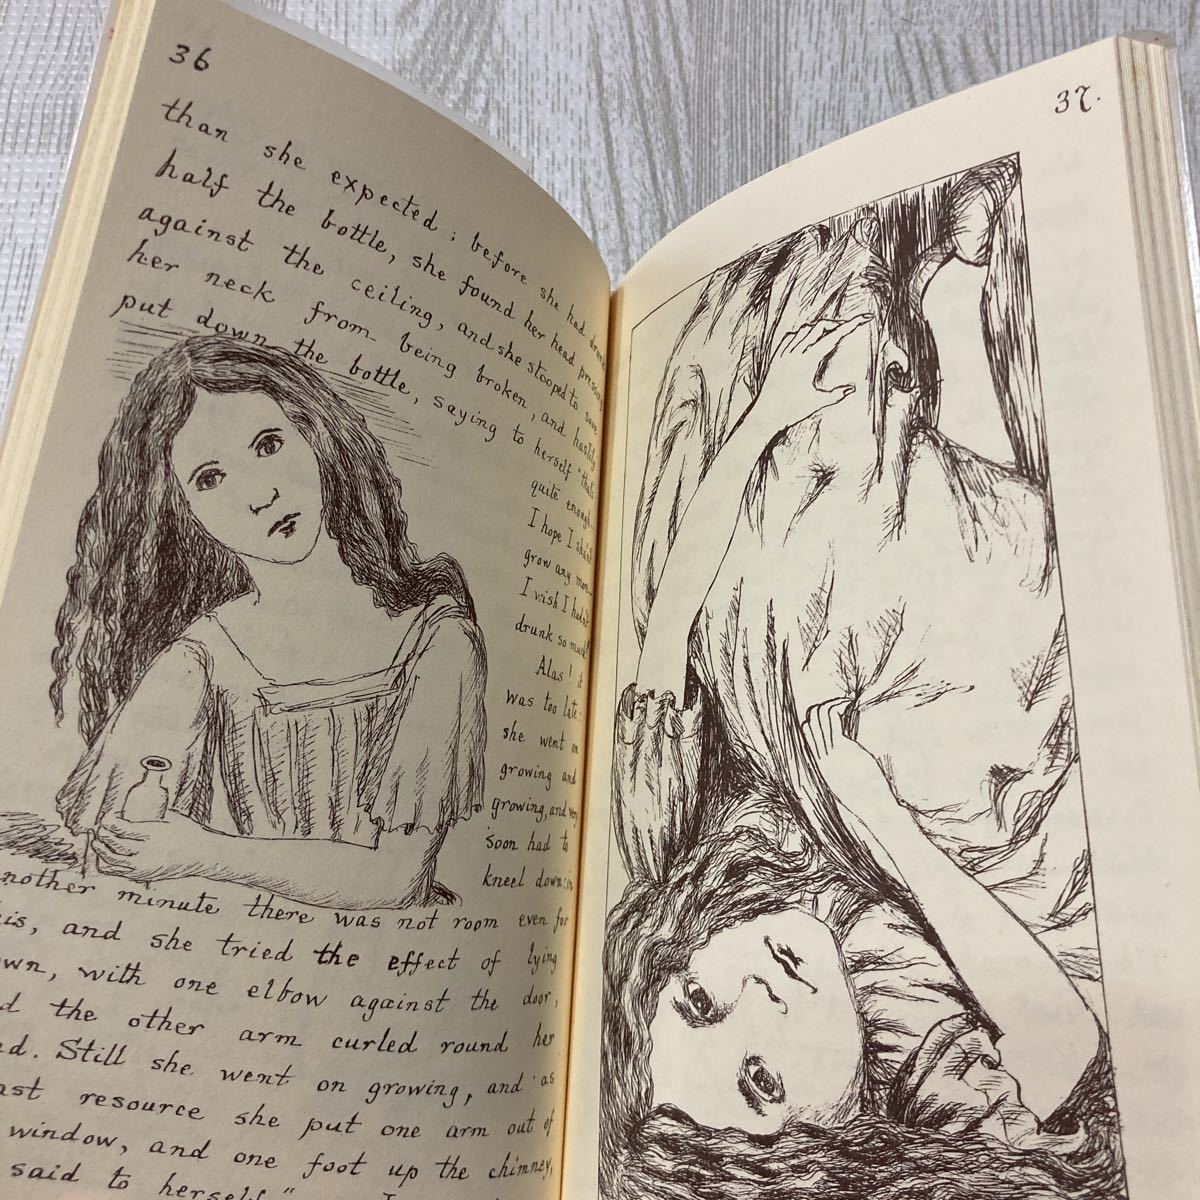 36
than she expected; before she had drunk
half the bottle, she found her head pressing
against the ceiling, and she stooped to save
her neck from being broken, and hastily
put down the bottle, saying to herself "that's
quite enough—
I hope I shan't
grow any more—
I wish I hadn't
drunk so much!
Alas! it
was too late:
she went on
growing and
growing, and very
soon had to
kneel down: in
another minute there was not room even for
this, and she tried the effect of lying
down, with one elbow against the door,
the other arm curled round her
Still she went on growing, and as
resource she put one arm out of
window, and one foot up the chimney,
said to herself "
37.